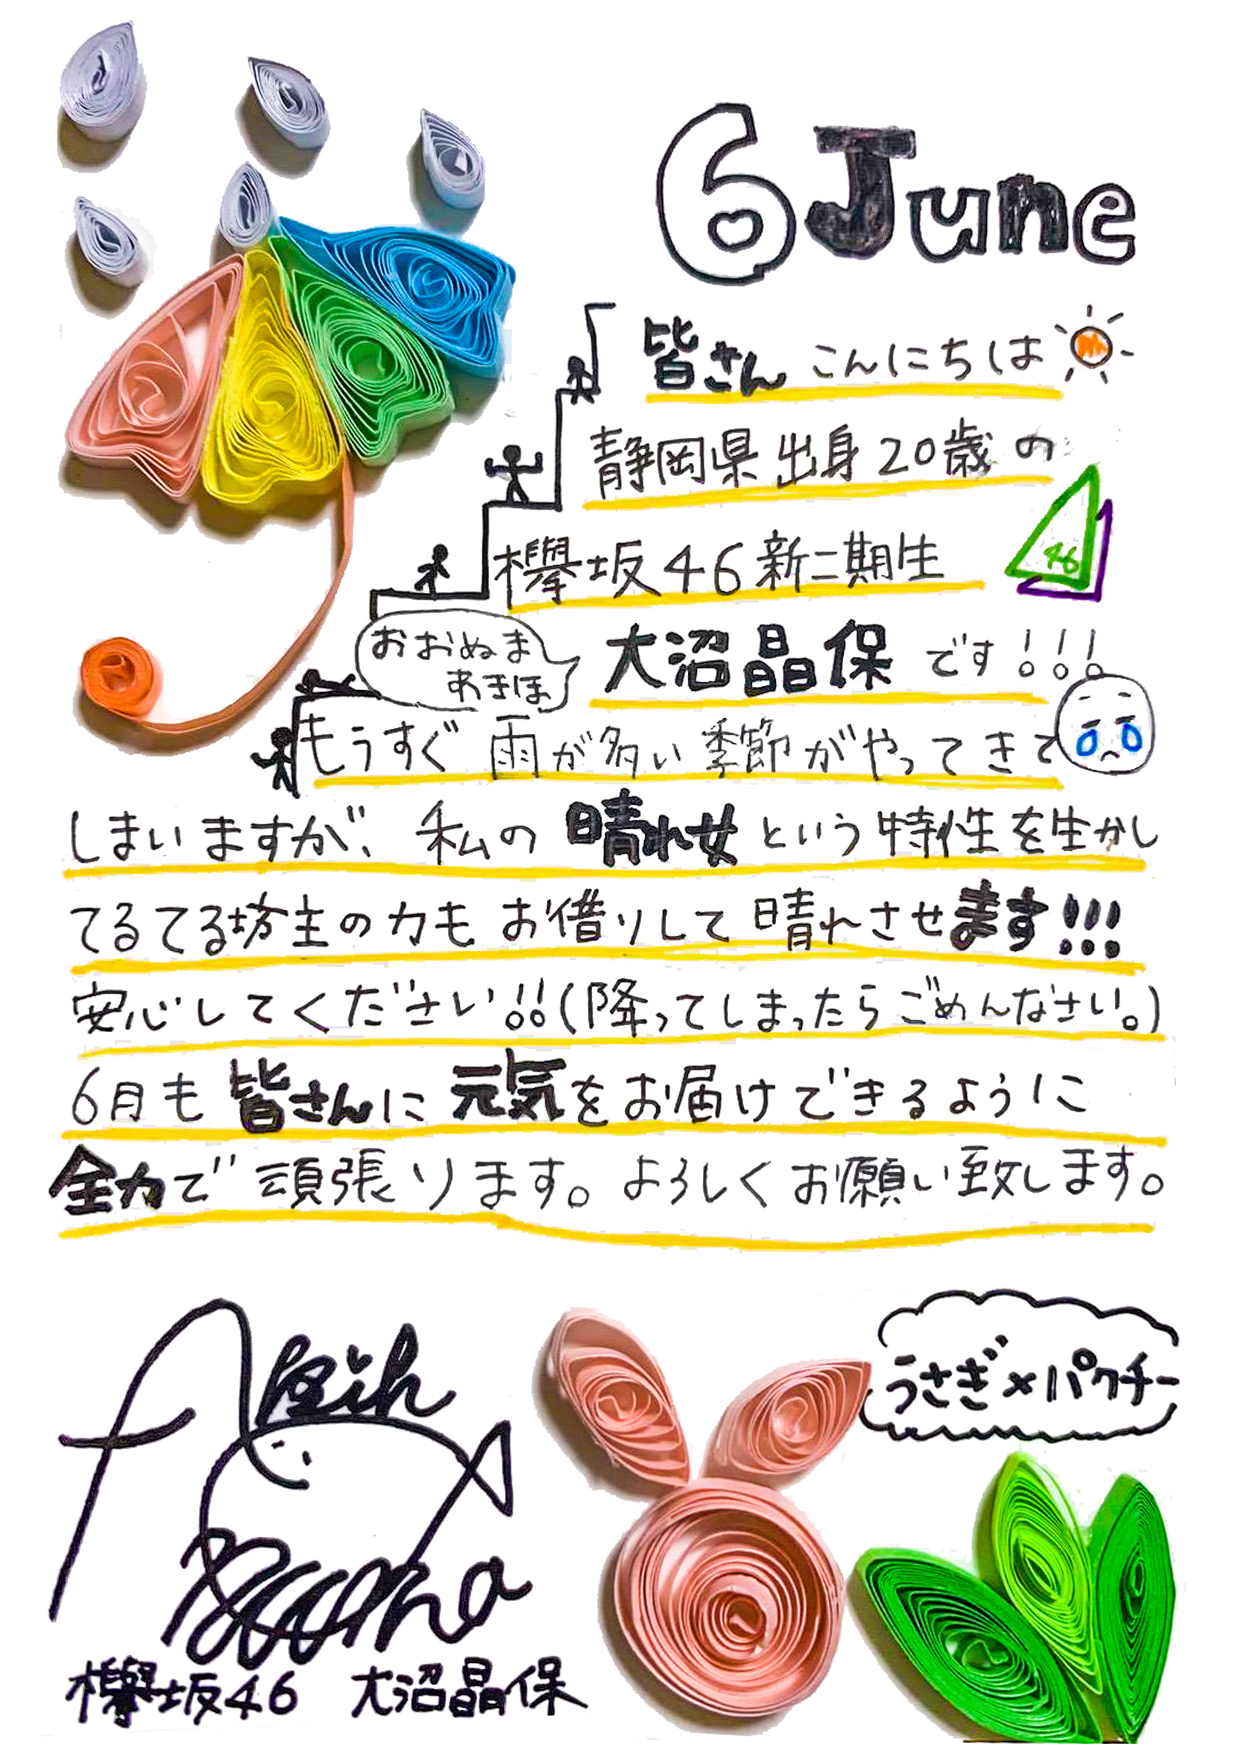 6 June
皆さん こんにちは
静岡県出身20歳の
46
欅坂46新二期生
おおぬま
あきほ
大沼晶保です!!!
もうすぐ雨が多い季節がやってきて
しまいますが、私の晴れ女という特性を生かし
てるてる坊主の力もお借りして晴れさせます!!!
安心してください!!(降ってしまったらごめんなさい。)
6月も皆さんに元気をお届けできるように
全力で頑張ります。よろしくお願い致します。
うさぎ×パクチー
欅坂46 大沼晶保